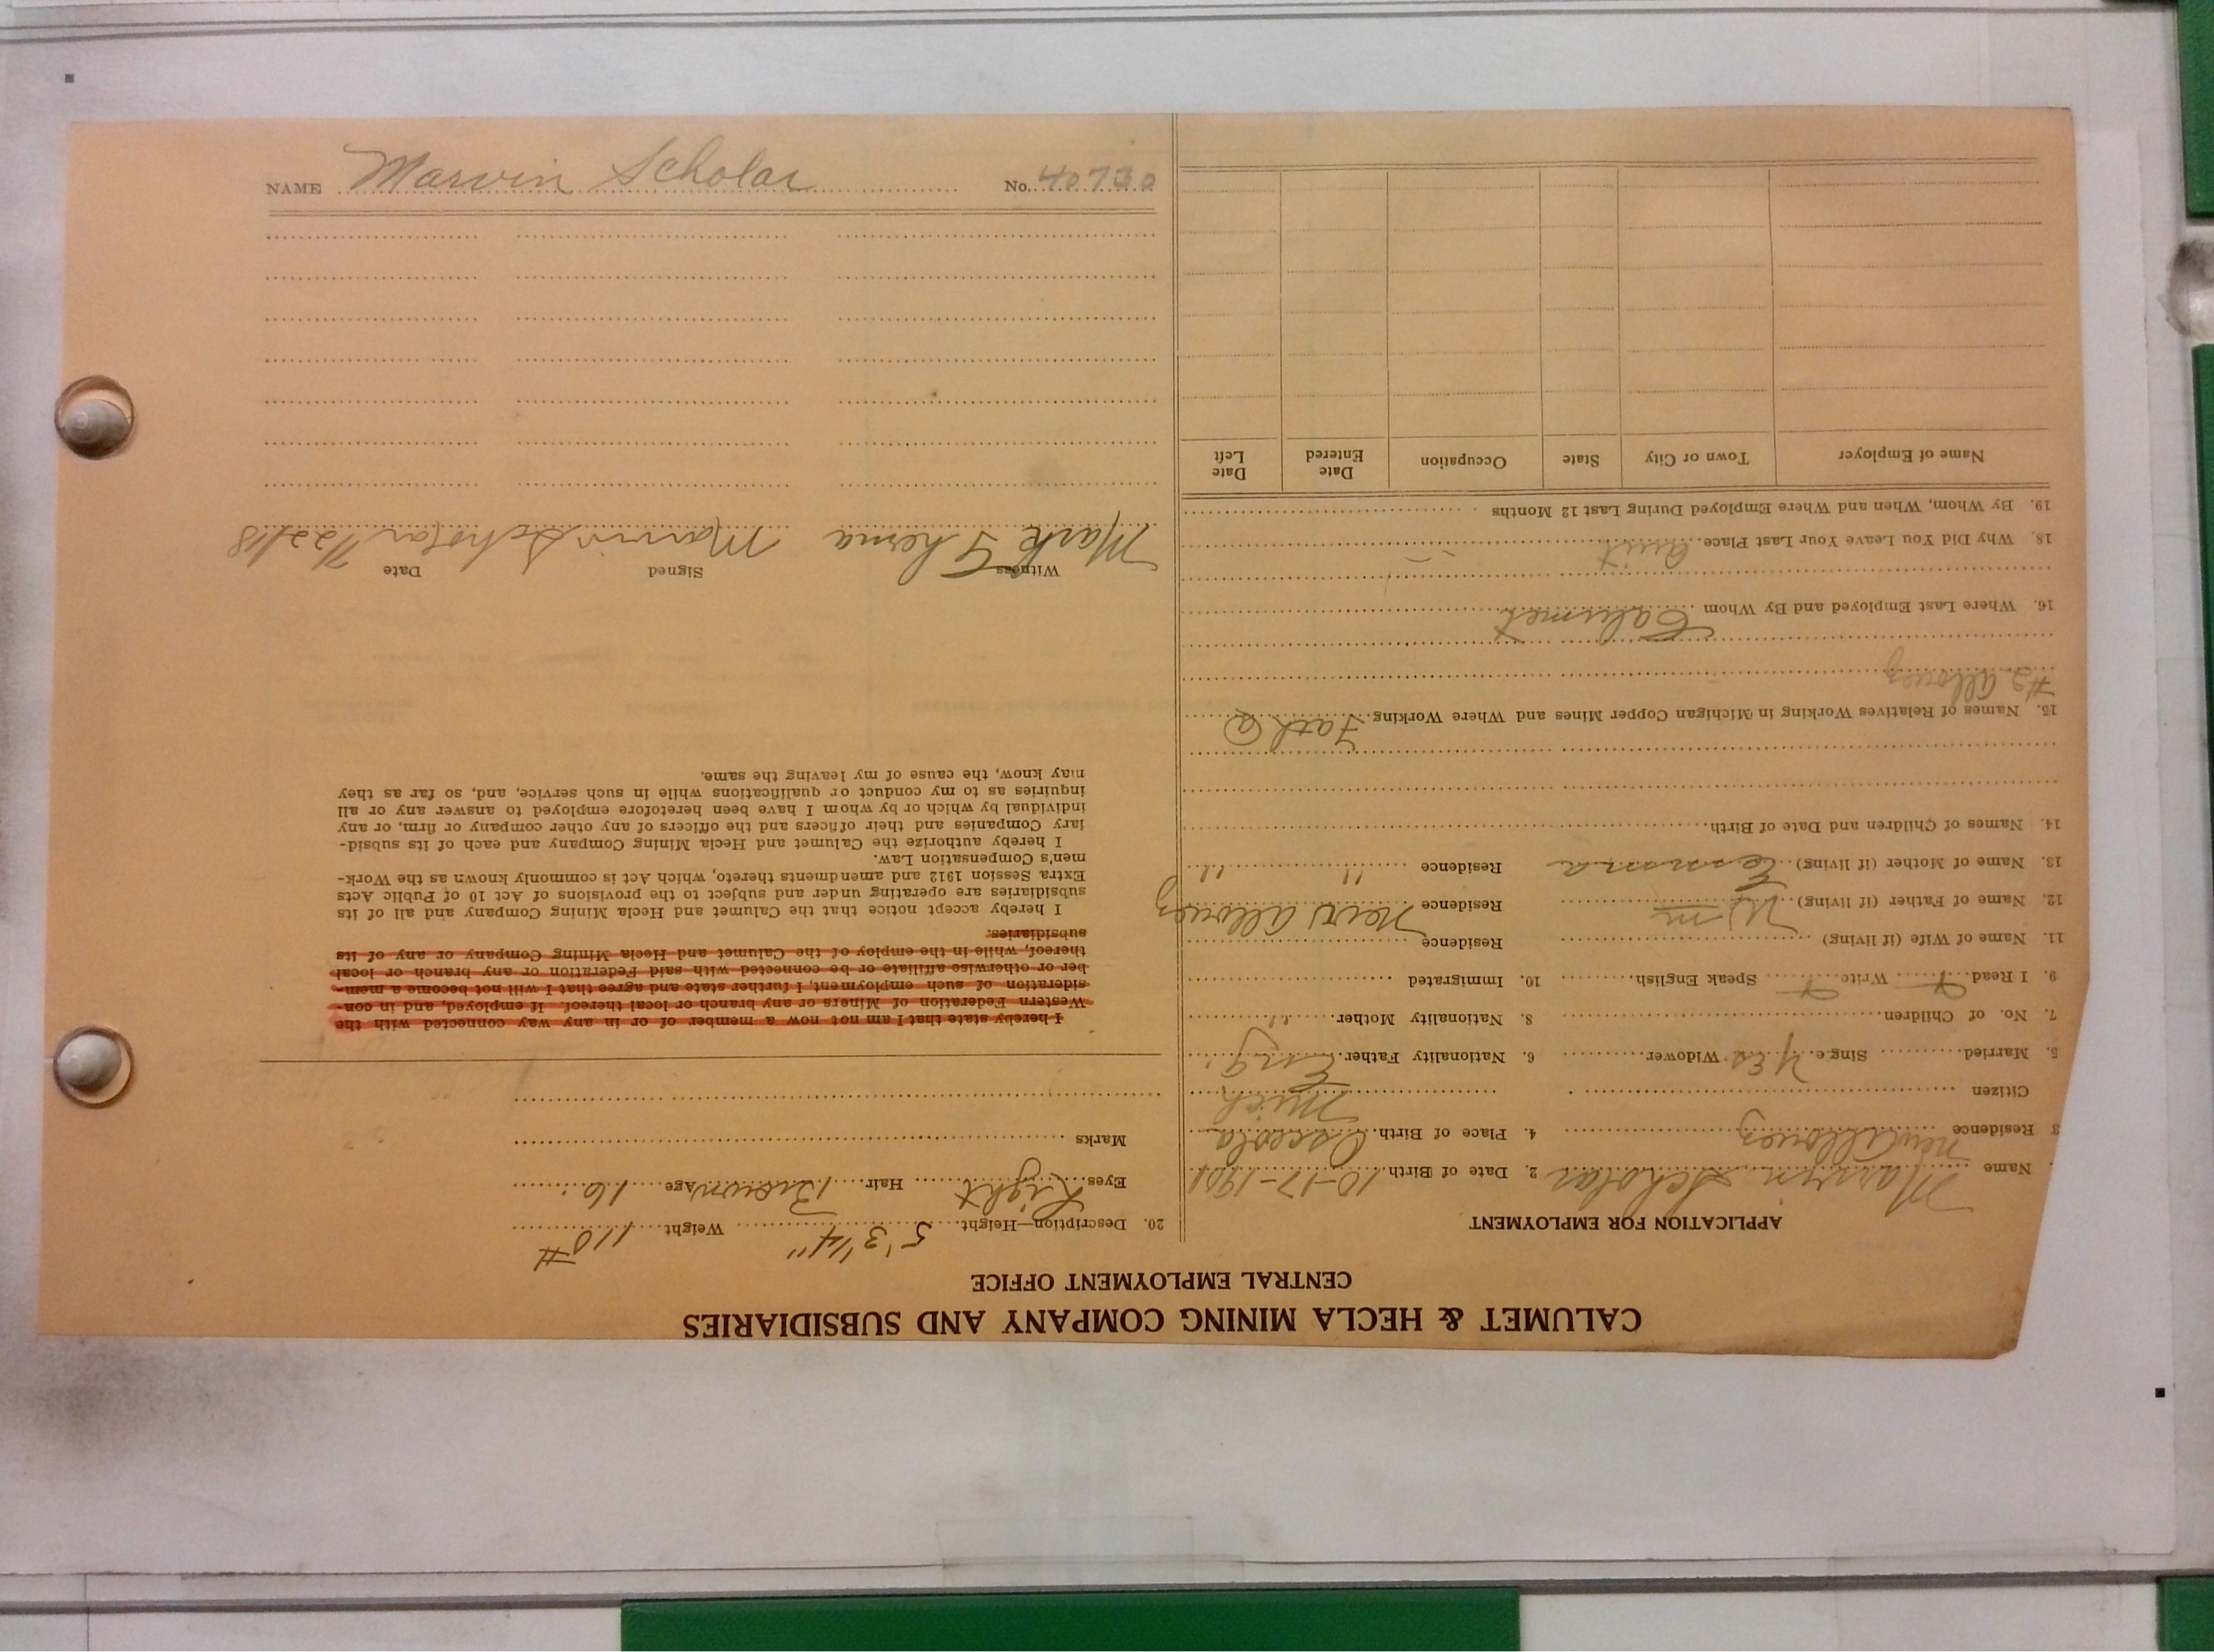 NAME Marvin Scholar No. 40730
CALUMET & HECLA MINING COMPANY AND SUBSIDIARIES
CENTRAL EMPLOYMENT OFFICE
APPLICATION FOR EMPLOYMENT
. Name Marvin Scholar 2. Date of Birth 10-17-1901
3 Residence New Allouez 4. Place of Birth Osceola
Mich
Citizen
5. Married Single Yes Widower 6. Nationality Father Eng.
7. No. of Children 8. Nationality Mother "
9. I Read Y Write Y Speak English 10. Immigrated
11. Name of Wife (if living) Residence
12. Name of Father (if living) Wm Residence New Allouez
13. Name of Mother (if living) Emma Residence " "
14. Names of Children and Date of Birth
15. Names of Relatives Working in Michigan Copper Mines and Where Working Fath @
#2 Allouez
16. Where Last Employed and By Whom Calumet
18. Why Did You Leave Your Last Place Quit
19. By Whom, When and Where Employed During Last 12 Months
Name of Employer Town or City State Occupation Date Entered Date Left
20. Description—Height 5' 3 1/4" Weight 110 #
Eyes Light Hair Brown Age 16
Marks
I hereby state that I am not now a member of or in any way connected with the
Western Federation of Miners or any branch or local thereof. If employed, and in con-
sideration of such employment, I further state and agree that I will not become a mem-
ber or otherwise affiliate or be connected with said Federation or any branch or local
thereof, while in the employ of the Calumet and Hecla Mining Company or any of its
subsidiaries.
I hereby accept notice that the Calumet and Hecla Mining Company and all of its
subsidiaries are operating under and subject to the provisions of Act 10 of Public Acts
Extra Session 1912 and amendments thereto, which Act is commonly known as the Work-
men's Compensation Law.
I hereby authorize the Calumet and Hecla Mining Company and each of its subsid-
iary Companies and their officers and the officers of any other company or firm, or any
individual by which or by whom I have been heretofore employed to answer any or all
inquiries as to my conduct or qualifications while in such service, and, so far as they
may know, the cause of my leaving the same.
Witness Signed Date
Mark Marvin Scholar 7/22/18